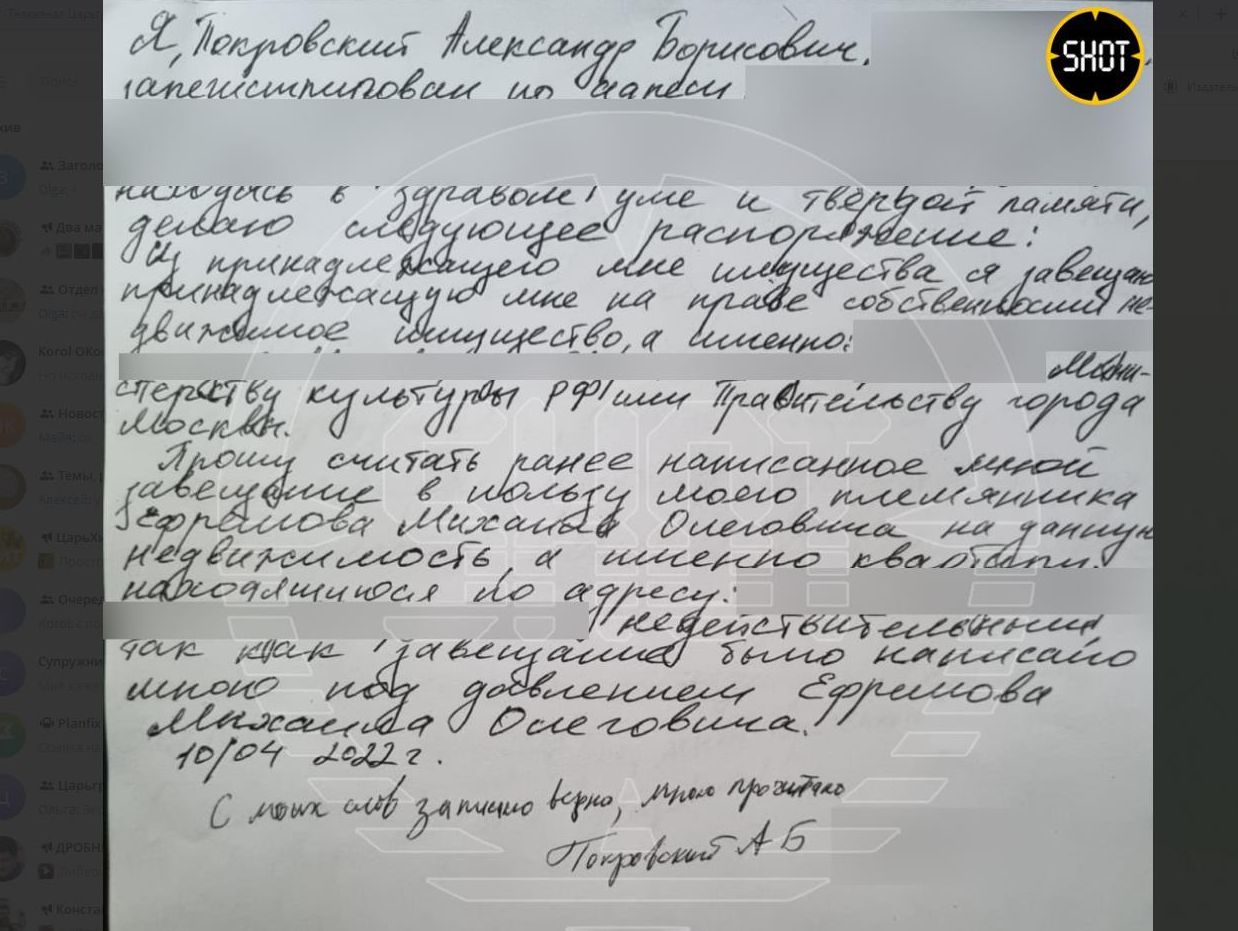 Я, Покровский Александр Борисович,
SHOT
зарегистрирован по адресу
находясь в здравом уме и твёрдой памяти,
делаю следующее распоряжение:
Из принадлежащего мне имущества я завещаю
принадлежащую мне на праве собственности не-
движимое имущество, а именно:
Мини-
стерству культуры РФ или Правительству города
Москвы.
Прошу считать ранее написанное мной
завещание в пользу моего племянника
Ефремова Михаила Олеговича на данную
недвижимость, а именно квартиры
находящиюся по адресу:
недействительным,
так как завещание было написано
мною под давлением Ефремова
Михаила Олеговича.
10/04 2022 г.
С моих слов записано верно, мною прочитано
Покровский А Б
Заголо
Olga:
Два ма
Отдел
Korol OKo
Новост
Темы,
ЦарьХ
Прост
Очеред
Супружни
Planfix
Царьгр
ДРОБН
Конста